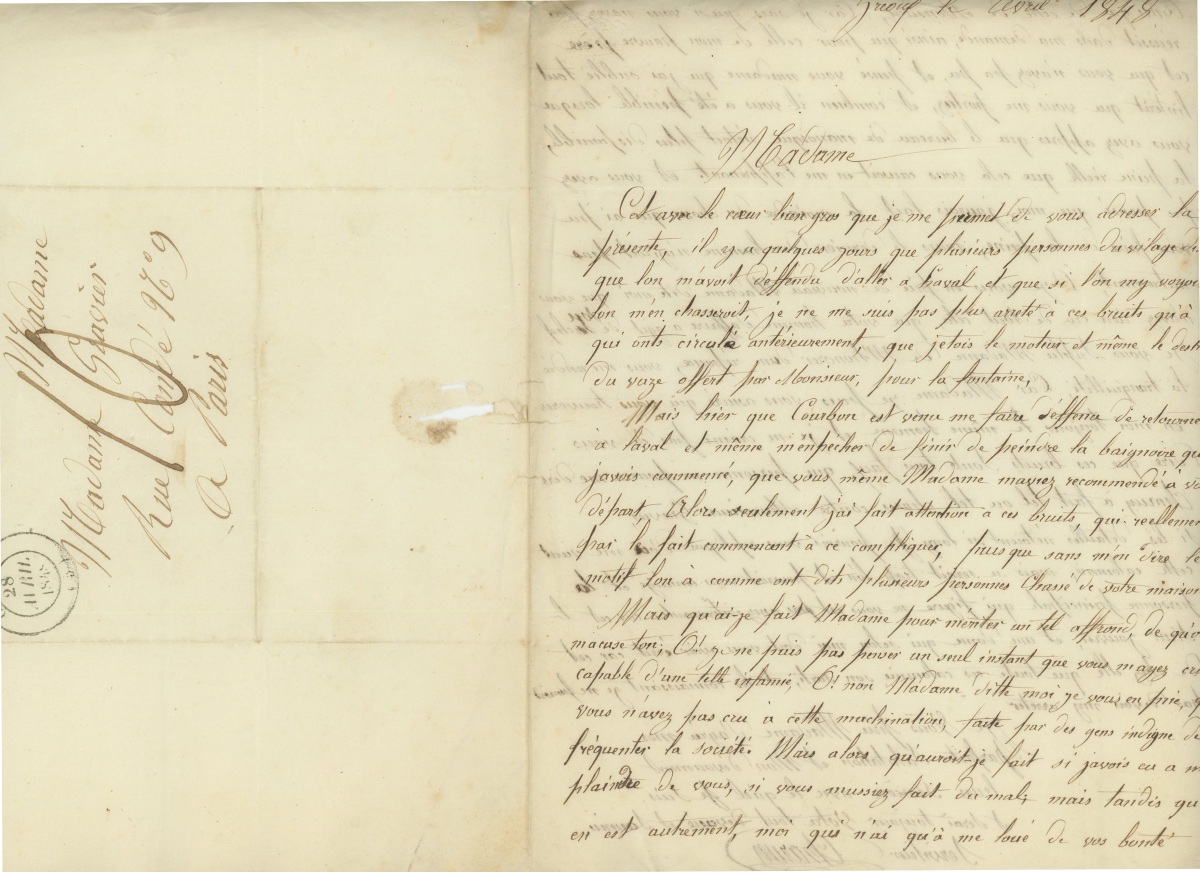 Madame
Madame Gravier
Rue Condé N° 9
A Paris
28
AVRIL
1848
le Avril 1848
Madame
C'et avec le cœur bien gros que je me permet de vous adresser la
présente, il y a quelques jours que plusieurs personnes du village
que lon m'avoit d'effendu d'aller a Laval et que si l'on my voyoi
lon m'en chasseroit, je ne me suis pas plus arreté à ces bruits qu'à
qui onts circulé antérieurement, que jetois le moteur et même le
du vaze offert par Monsieur, pour la fontaine,
Mais hier que Courbon est venu me faire d'effence de retourne
à Laval et même m'enpécher de finir de peindre la baignoire que
javois commencé, que vous même Madame maviez recommendé à vo
départ, Alors seulement j'ai fait attention a ces bruits, qui reelleme
par le fait commencent à ce compliquer, puisque sans m'en dire le
motif lon à comme ont dits plusieurs personnes Chassé de votre maison
Mais qu'ai-je fait Madame pour mériter un tel affrond, de qu'o
macuse ton; O! je ne puis pas penser un seul instant que vous m'ayez
capable d'une telle infamie, O! non Madame ditte moi je vous en prie, q
vous n'avez pas cru à cette machination, faite par des gens indigne de
fréquenter la société. Mais alors qu'auroit-je fait si javois eu a m
plaindre de vous, si vous mussiez fait du mal, mais tandis qu
en est autrement, moi qui n'ai qu'à me loué de vos bonté